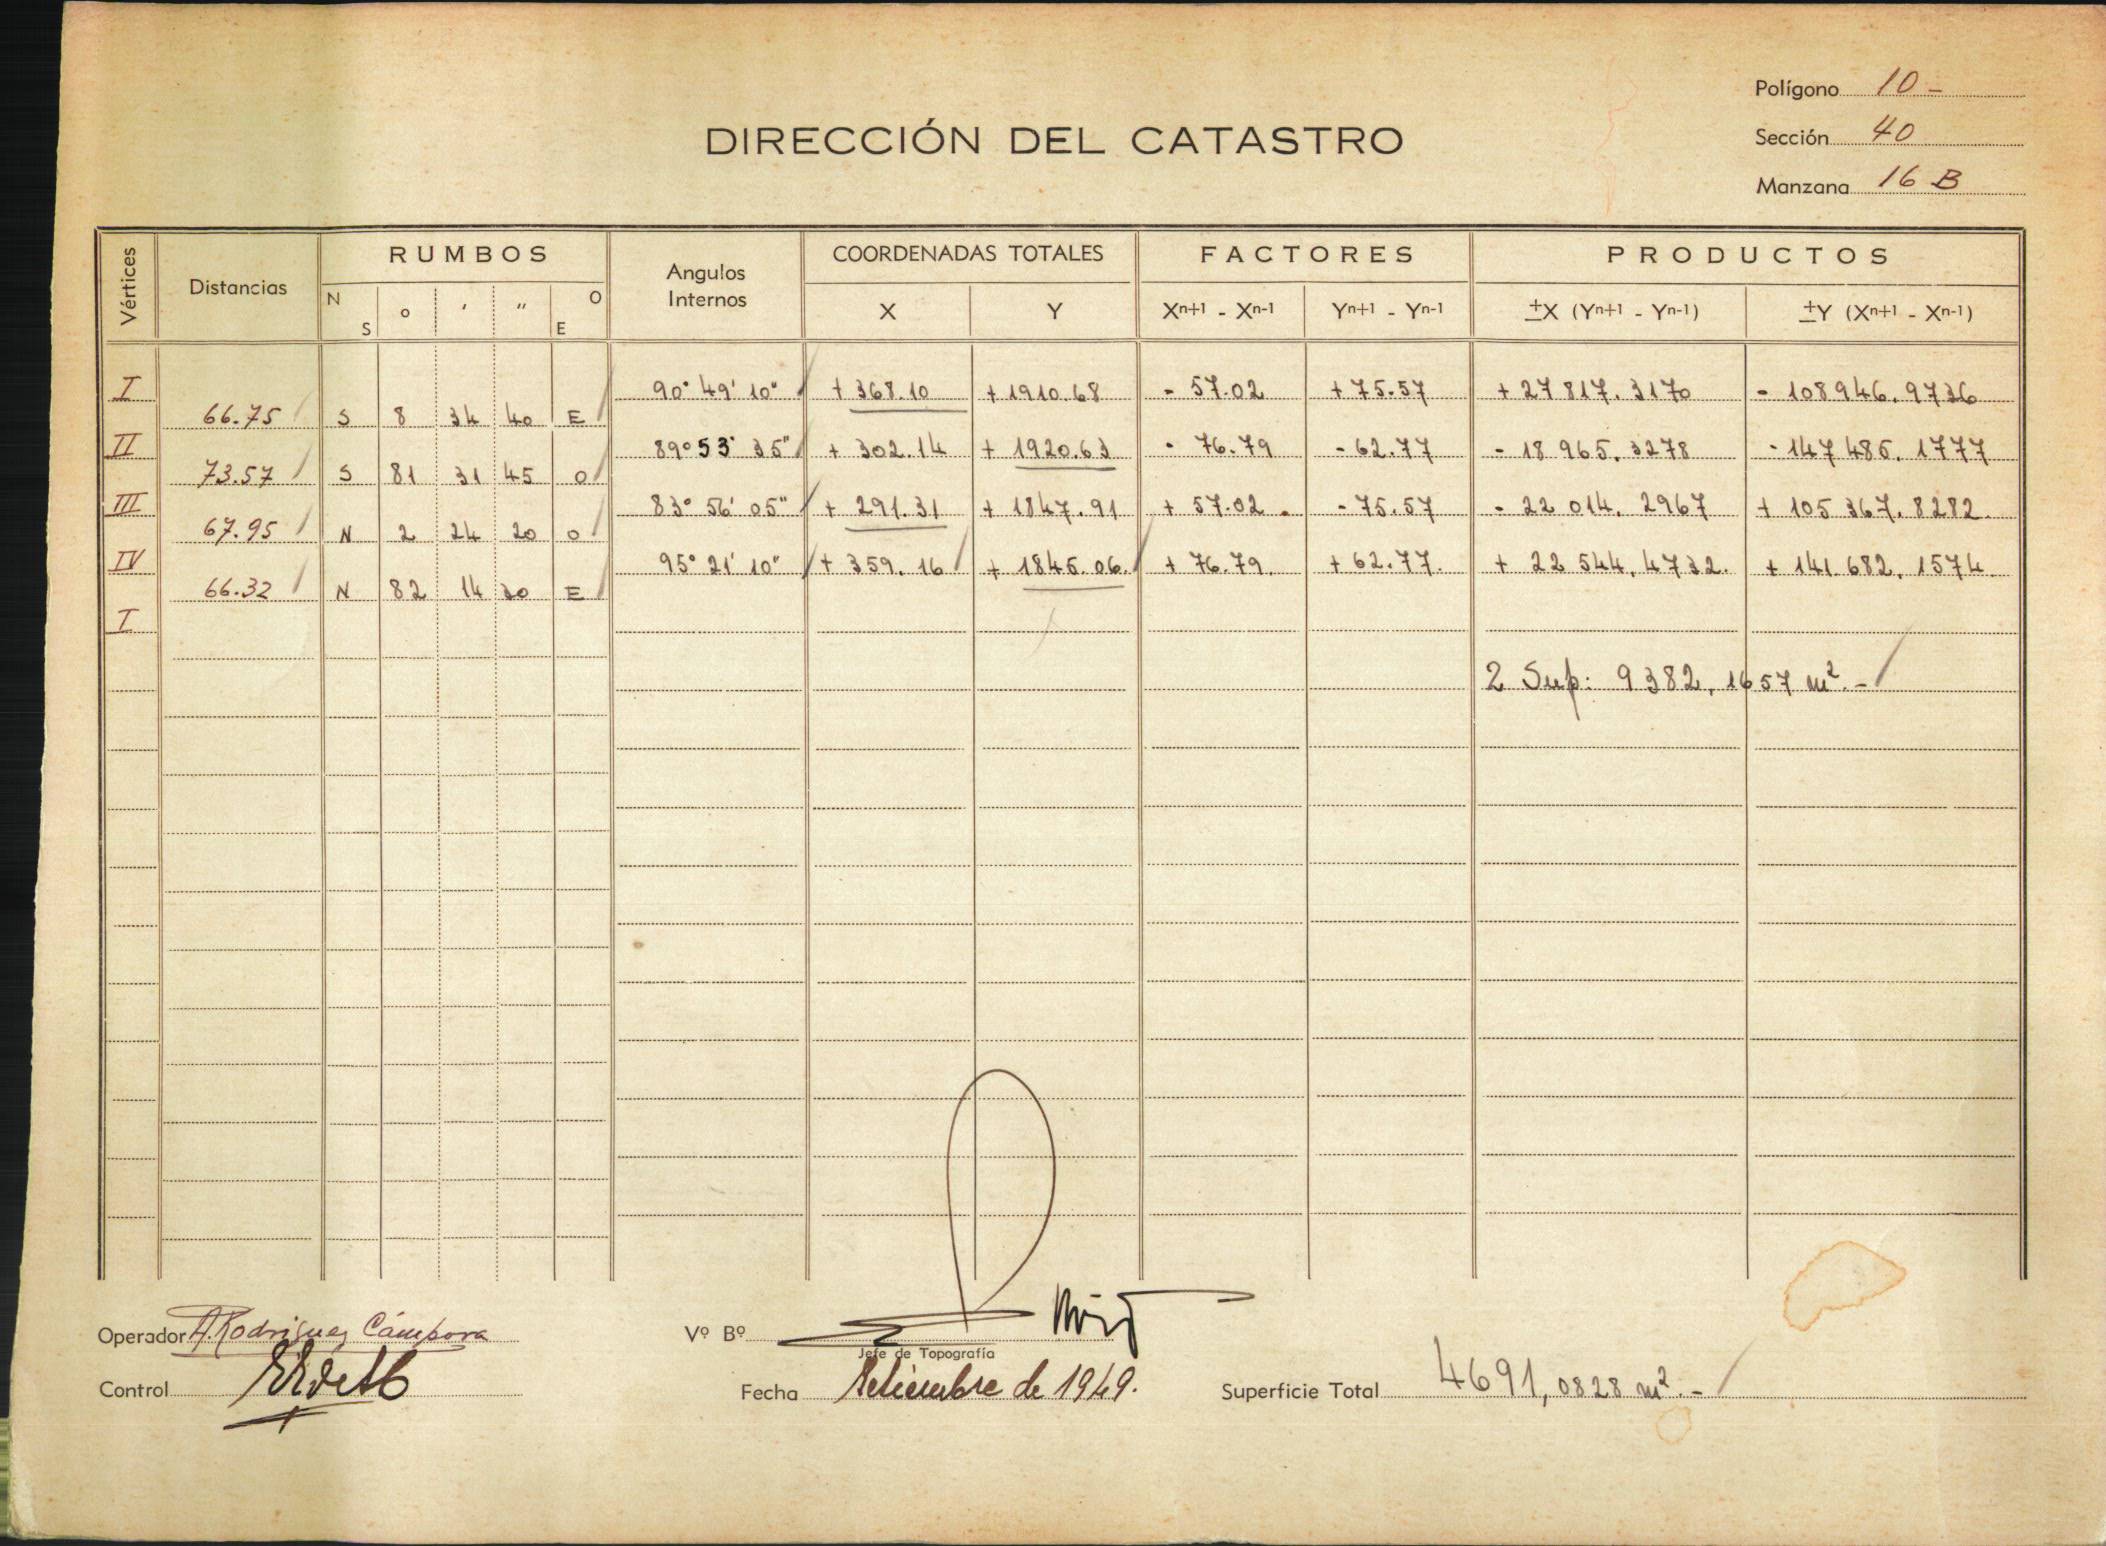 Polígono 10 -
DIRECCIÓN DEL CATASTRO
Sección 40
Manzana 16 B
Vértices Distancias RUMBOS Angulos Internos COORDENADAS TOTALES FACTORES PRODUCTOS
N S ° ' " O E X Y Xn+1 - Xn-1 Yn+1 - Yn-1 ±X (Yn+1 - Yn-1) ±Y (Xn+1 - Xn-1)
I 90° 49' 10" + 368.10 + 1910.68 - 57.02 + 75.57 + 27 817. 3170 - 108946. 9736
66.75 S 8 34 40 E
II 89° 53' 35" + 302.14 + 1920.63 - 76.79 - 62.77 - 18 965. 3278 - 147 485. 1777
73.57 S 81 31 45 O
III 83° 56' 05" + 291.31 + 1847.91 + 57.02 - 75.57 - 22 014. 2967 + 105 367. 8282
67.95 N 2 24 20 O
IV 95° 21' 10" + 359.16 + 1845.06 + 76.79 + 62.77 + 22 544. 4732 + 141.682. 1574
66.32 N 82 14 30 E
I
2 Sup: 9382, 1657 m². -
Operador A. Rodriguez Cámpora
Vº Bº
Jefe de Topografía
Control
Fecha Setiembre de 1949.
Superficie Total 4691, 0828 m². -